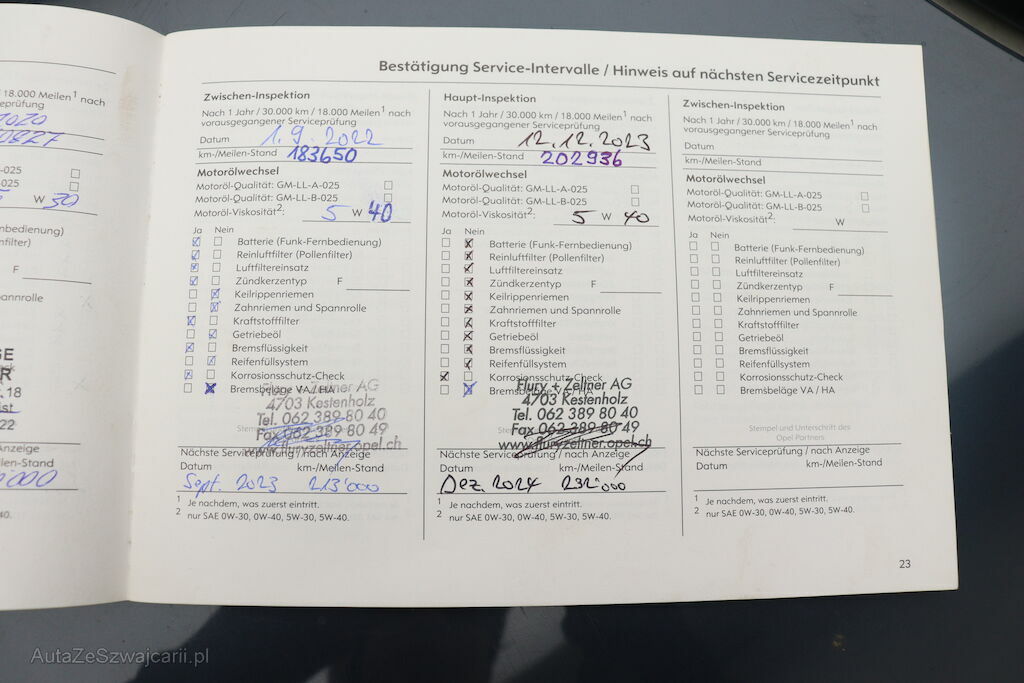 18.000 Meilen¹ nach
prüfung
2020
W 30
F
pannrolle
Bestätigung Service-Intervalle / Hinweis auf nächsten Servicezeitpunkt
Zwischen-Inspektion
Nach 1 Jahr / 30.000 km / 18.000 Meilen¹ nach
vorausgegangener Serviceprüfung
Datum 1.9.2022
km-/Meilen-Stand 183650
Motorölwechsel
Motoröl-Qualität: GM-LL-A-025
Motoröl-Qualität: GM-LL-B-025
Motoröl-Viskosität²: 5 W 40
Ja Nein
Batterie (Funk-Fernbedienung)
Reinluftfilter (Pollenfilter)
Luftfiltereinsatz
Zündkerzentyp F
Keilrippenriemen
Zahnriemen und Spannrolle
Kraftstofffilter
Getriebeöl
Bremsflüssigkeit
Reifenfüllsystem
Korrosionsschutz-Check
Bremsbeläge VA / HA
Flury + Zellner AG
4703 Kestenholz
Tel. 062 389 80 40
Fax 062 389 80 49
www.fluryzellner.opel.ch
Nächste Serviceprüfung / nach Anzeige
Datum km-/Meilen-Stand
Sept. 2023 213'000
1 Je nachdem, was zuerst eintritt.
2 nur SAE 0W-30, 0W-40, 5W-30, 5W-40.
Haupt-Inspektion
Nach 1 Jahr / 30.000 km / 18.000 Meilen¹ nach
vorausgegangener Serviceprüfung
Datum 12.12.2023
km-/Meilen-Stand 202936
Motorölwechsel
Motoröl-Qualität: GM-LL-A-025
Motoröl-Qualität: GM-LL-B-025
Motoröl-Viskosität²: 5 W 40
Ja Nein
Batterie (Funk-Fernbedienung)
Reinluftfilter (Pollenfilter)
Luftfiltereinsatz
Zündkerzentyp F
Keilrippenriemen
Zahnriemen und Spannrolle
Kraftstofffilter
Getriebeöl
Bremsflüssigkeit
Reifenfüllsystem
Korrosionsschutz-Check
Bremsbeläge VA / HA
Flury + Zellner AG
4703 Kestenholz
Tel. 062 389 80 40
Fax 062 389 80 49
www.fluryzellner.opel.ch
Nächste Serviceprüfung / nach Anzeige
Datum km-/Meilen-Stand
Dez. 2024 232'000
1 Je nachdem, was zuerst eintritt.
2 nur SAE 0W-30, 0W-40, 5W-30, 5W-40.
Zwischen-Inspektion
Nach 1 Jahr / 30.000 km / 18.000 Meilen¹ nach
vorausgegangener Serviceprüfung
Datum
km-/Meilen-Stand
Motorölwechsel
Motoröl-Qualität: GM-LL-A-025
Motoröl-Qualität: GM-LL-B-025
Motoröl-Viskosität²: W
Ja Nein
Batterie (Funk-Fernbedienung)
Reinluftfilter (Pollenfilter)
Luftfiltereinsatz
Zündkerzentyp F
Keilrippenriemen
Zahnriemen und Spannrolle
Kraftstofffilter
Getriebeöl
Bremsflüssigkeit
Reifenfüllsystem
Korrosionsschutz-Check
Bremsbeläge VA / HA
Stempel und Unterschrift des
Opel Partners
Nächste Serviceprüfung / nach Anzeige
Datum km-/Meilen-Stand
1 Je nachdem, was zuerst eintritt.
2 nur SAE 0W-30, 0W-40, 5W-30, 5W-40.
23
AutaZeSzwajcarii.pl